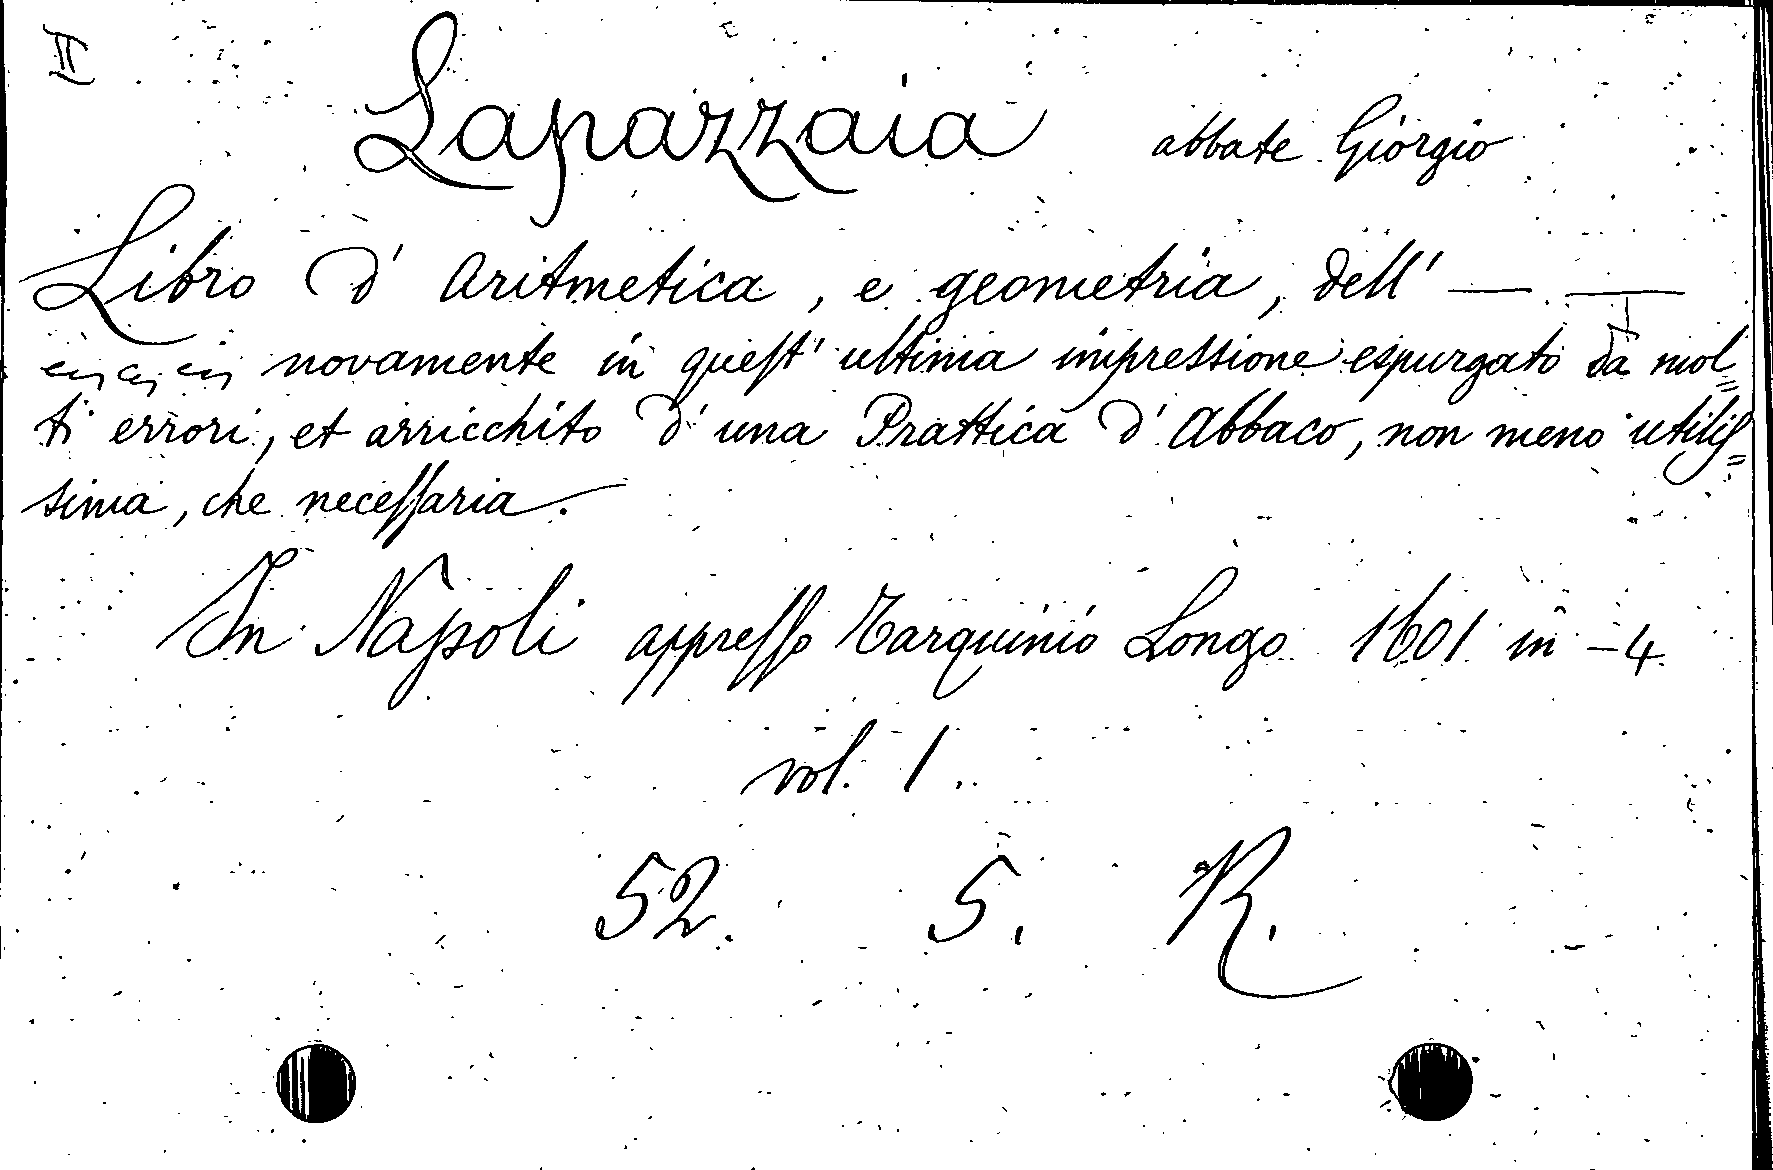 II
Lapazzaia abbate Giorgio
Libro d' Aritmetica, e geometria, dell' — —
novamente in quest' ultima impressione espurgato da mol=
ti errori, et arricchito d' una Prattica d' Abbaco, non meno utilis=
sima, che necessaria.
In Napoli appresso Tarquinio Longo 1601 in -4
vol. 1.
52. 5. R.